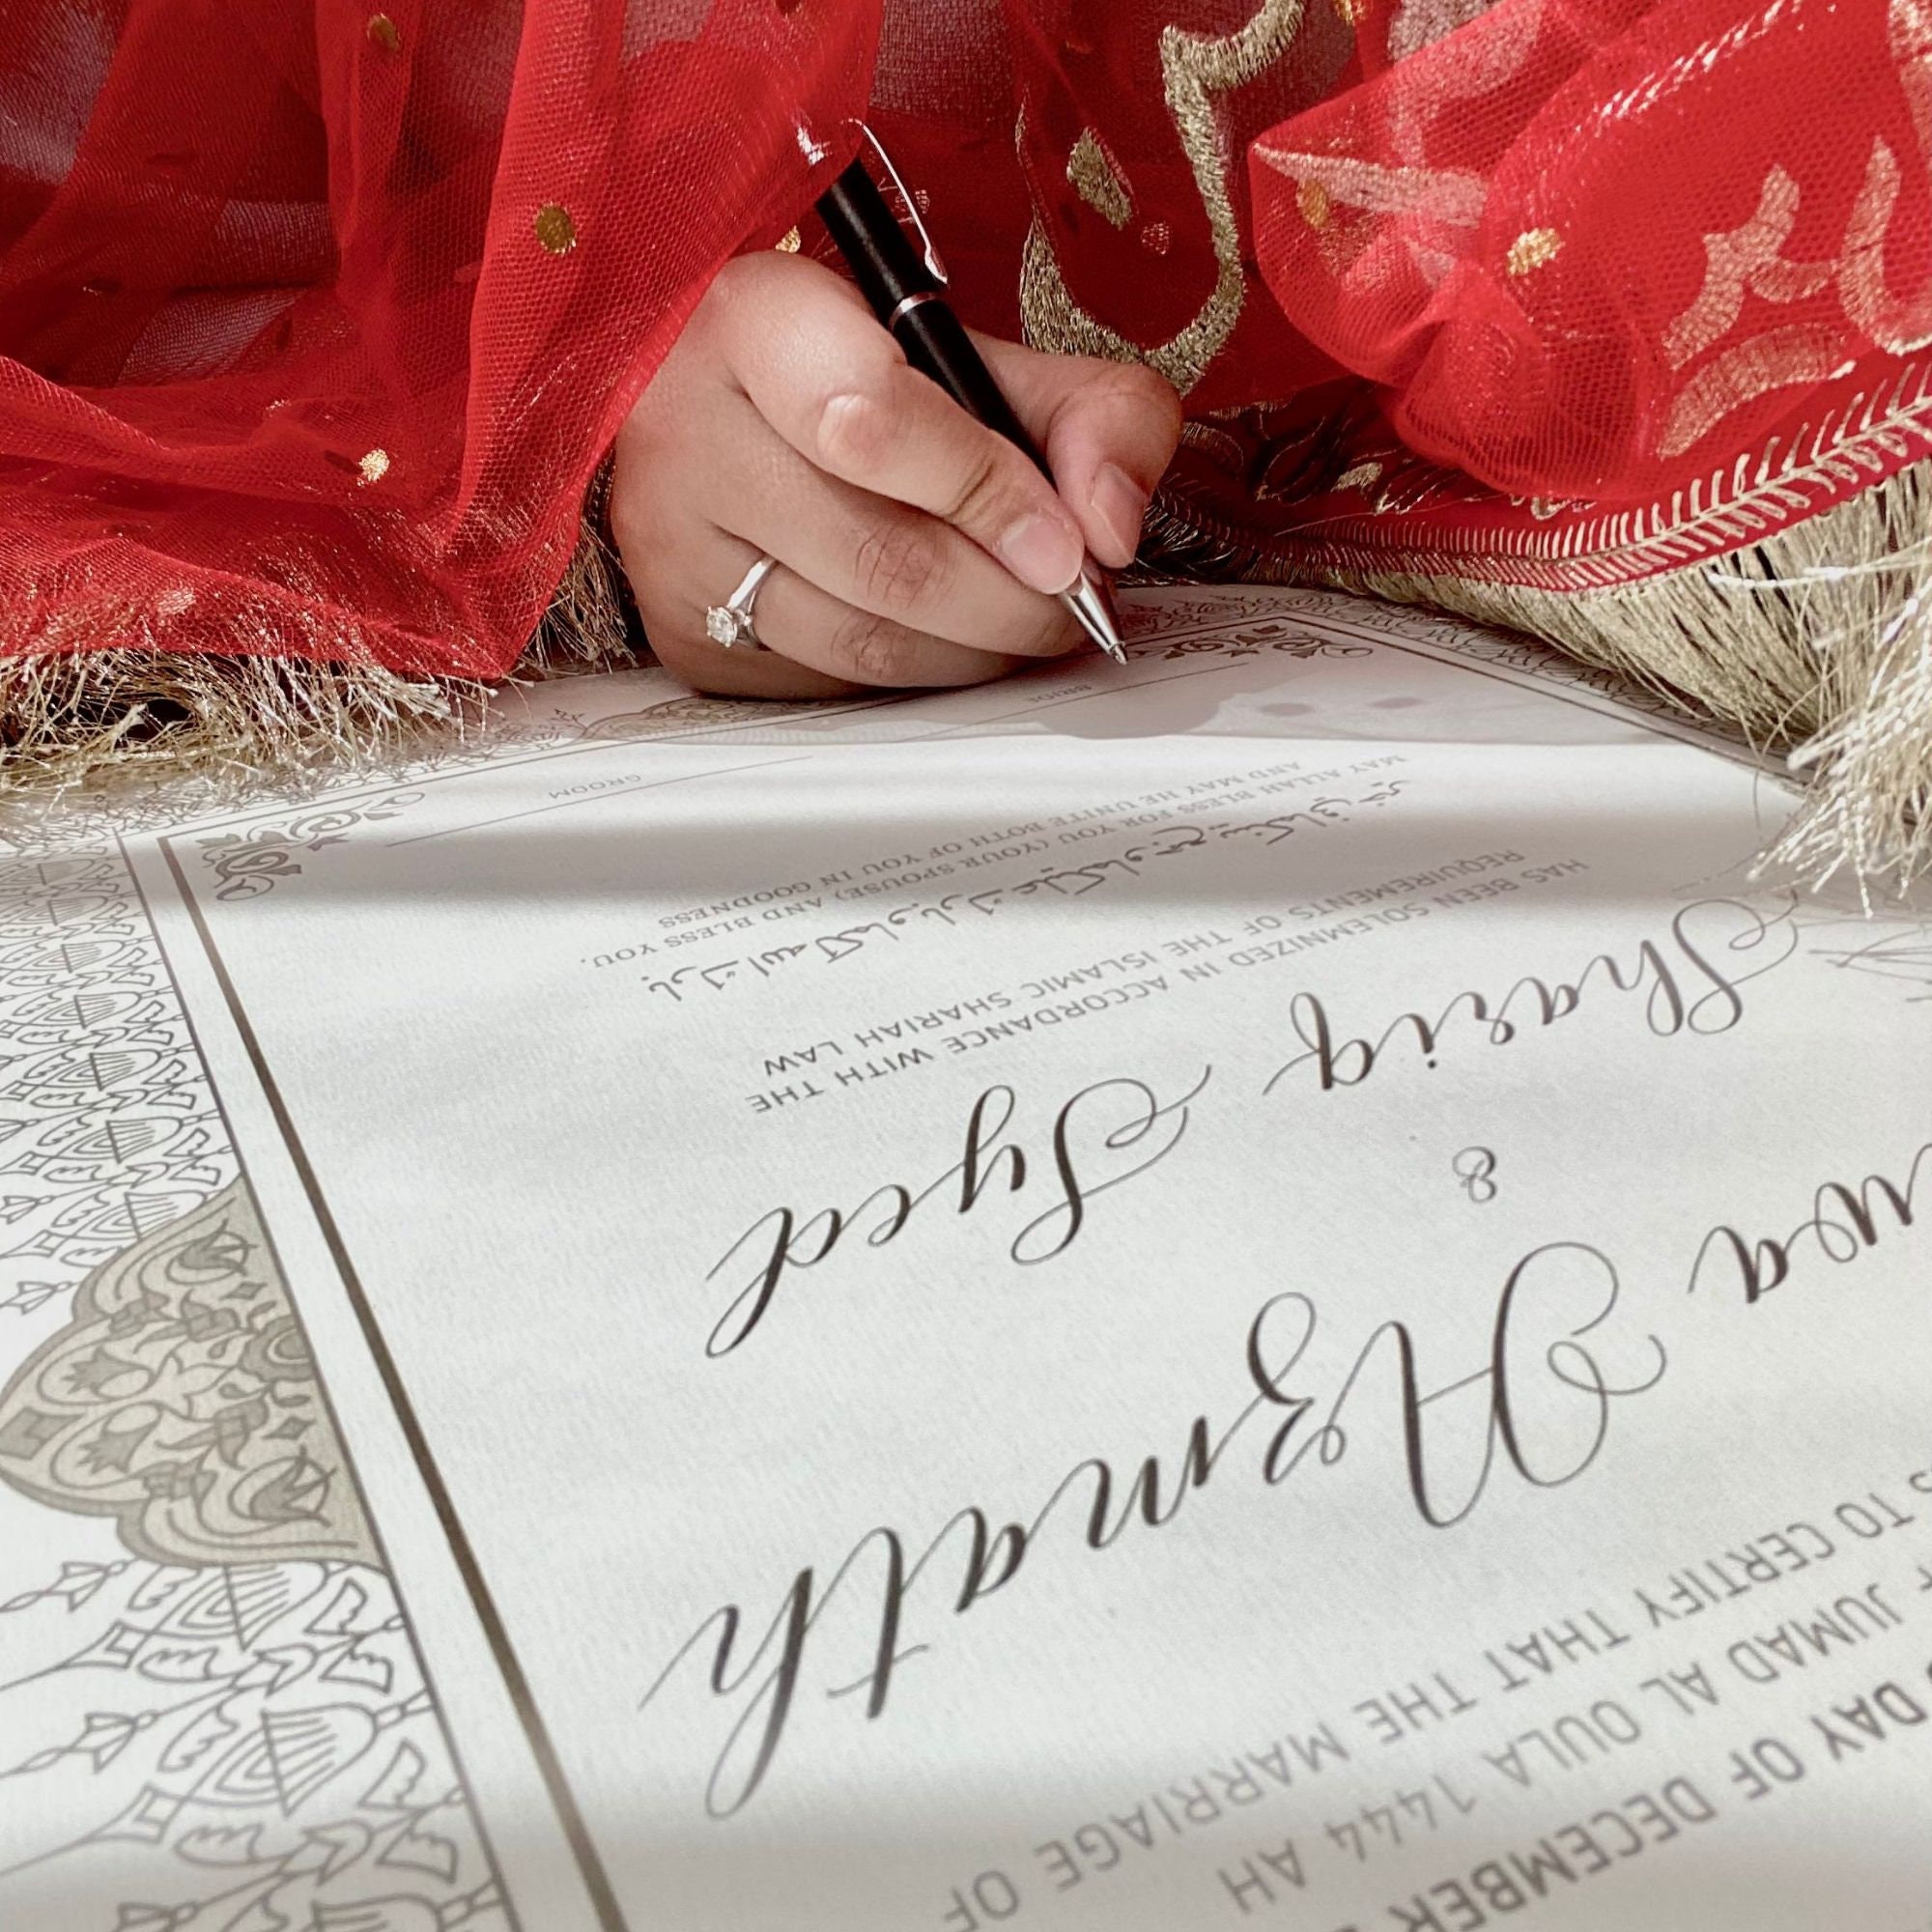 DAY OF DECEMBER
JUMAD AL OULA 1444 AH
TO CERTIFY THAT THE MARRIAGE OF
Azmath
&
Shariq Syed
HAS BEEN SOLEMNIZED IN ACCORDANCE WITH THE
REQUIREMENTS OF THE ISLAMIC SHARIAH LAW
بارك الله لكما و بارك عليكما و جمع بينكما في خير
MAY ALLAH BLESS FOR YOU (YOUR SPOUSE) AND BLESS YOU,
AND MAY HE UNITE BOTH OF YOU IN GOODNESS
BRIDE
GROOM